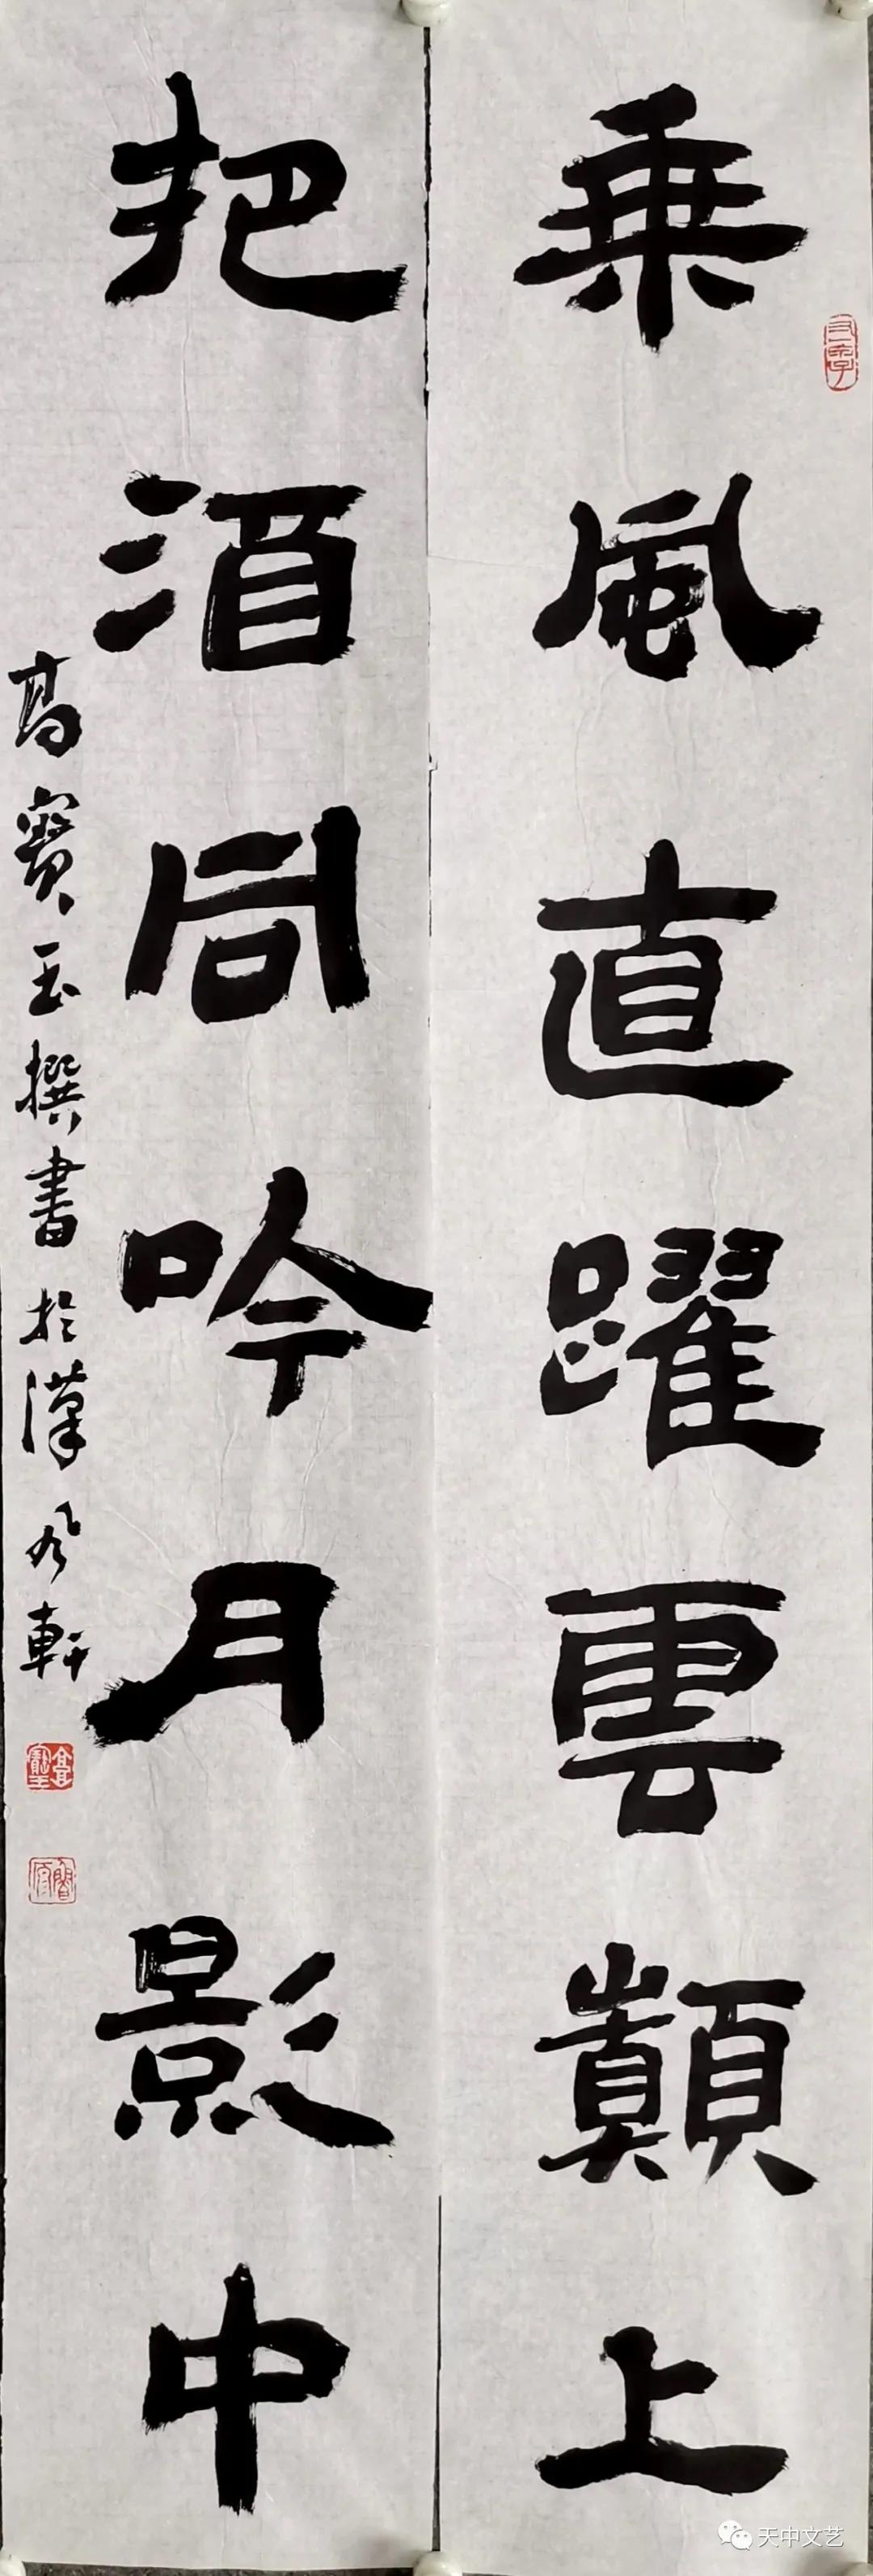 乗風直躍雲巔上
把酒同吟月影中
高寶玉撰書於漢風軒
高寶玉
天中文艺